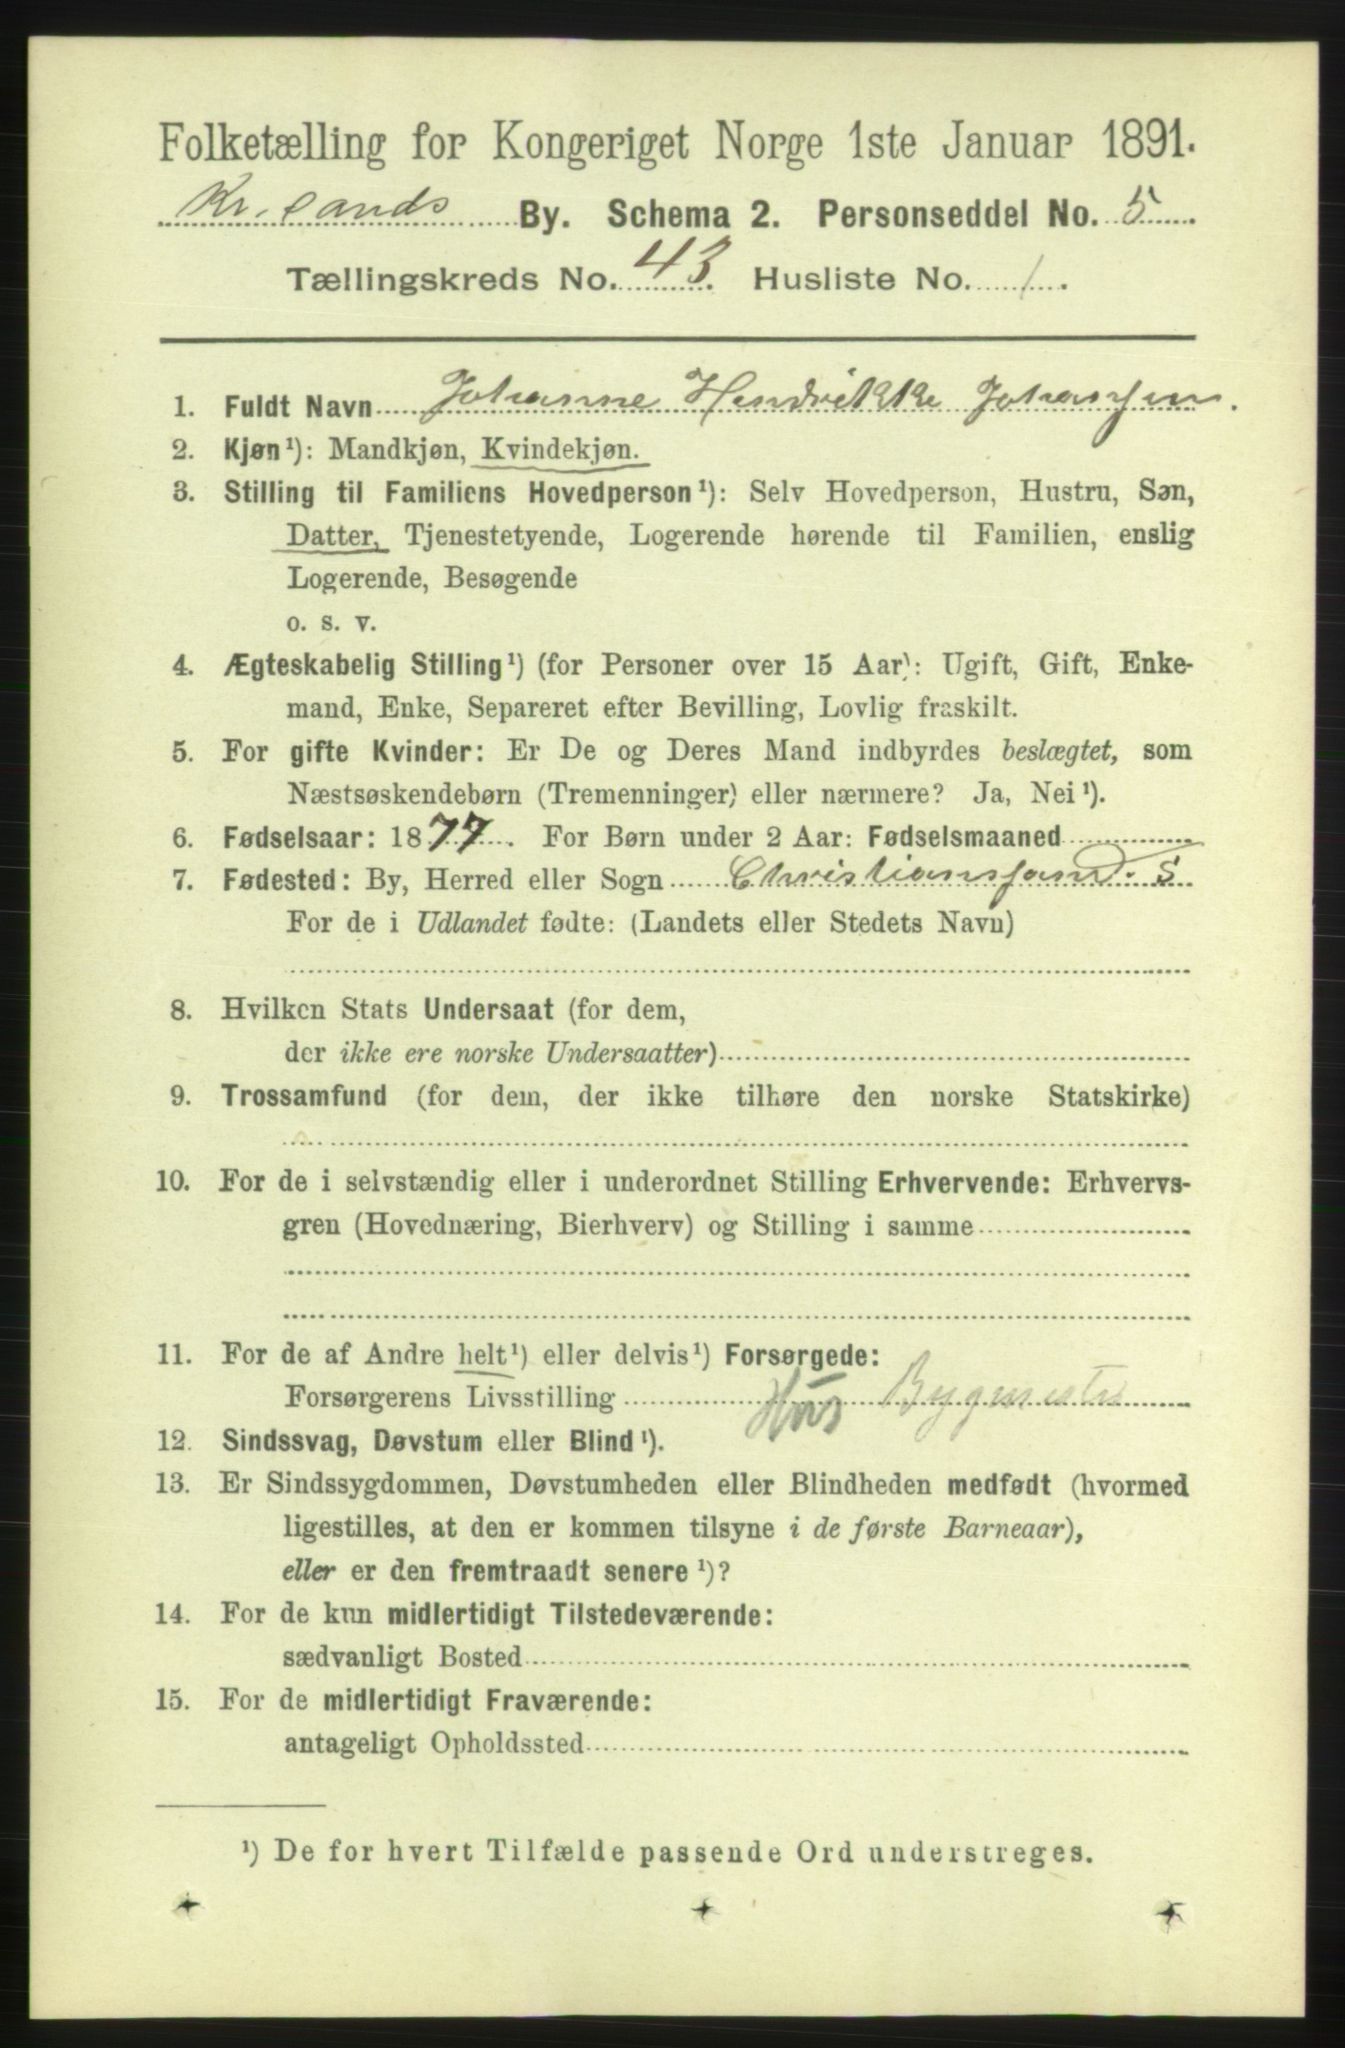 Folketælling for Kongeriget Norge 1ste Januar 1891.
Kr.sands By. Schema 2. Personseddel No. 5
Tællingskreds No. 43. Husliste No. 1.
1. Fuldt Navn Johanne Hendrikke Johansen.
2. Kjøn¹): Mandkjøn, Kvindekjøn.
3. Stilling til Familiens Hovedperson¹): Selv Hovedperson, Hustru, Søn,
Datter, Tjenestetyende, Logerende hørende til Familien, enslig
Logerende, Besøgende
o. s. v.
4. Ægteskabelig Stilling¹) (for Personer over 15 Aar): Ugift, Gift, Enke-
mand, Enke, Separeret efter Bevilling, Lovlig fraskilt.
5. For gifte Kvinder: Er De og Deres Mand indbyrdes beslægtet, som
Næstsøskendebørn (Tremenninger) eller nærmere? Ja, Nei¹).
6. Fødselsaar: 1877. For Børn under 2 Aar: Fødselsmaaned
7. Fødested: By, Herred eller Sogn Christianssand. S
For de i Udlandet fødte: (Landets eller Stedets Navn)
8. Hvilken Stats Undersaat (for dem,
der ikke ere norske Undersaatter)
9. Trossamfund (for dem, der ikke tilhøre den norske Statskirke)
10. For de i selvstændig eller i underordnet Stilling Erhvervende: Erhvervs-
gren (Hovednæring, Bierhverv) og Stilling i samme
11. For de af Andre helt¹) eller delvis¹) Forsørgede:
Forsørgerens Livsstilling Hus Bygmester
12. Sindssvag, Døvstum eller Blind¹).
13. Er Sindssygdommen, Døvstumheden eller Blindheden medfødt (hvormed
ligestilles, at den er kommen tilsyne i de første Barneaar),
eller er den fremtraadt senere¹)?
14. For de kun midlertidigt Tilstedeværende:
sædvanligt Bosted
15. For de midlertidigt Fraværende:
antageligt Opholdssted
¹) De for hvert Tilfælde passende Ord understreges.